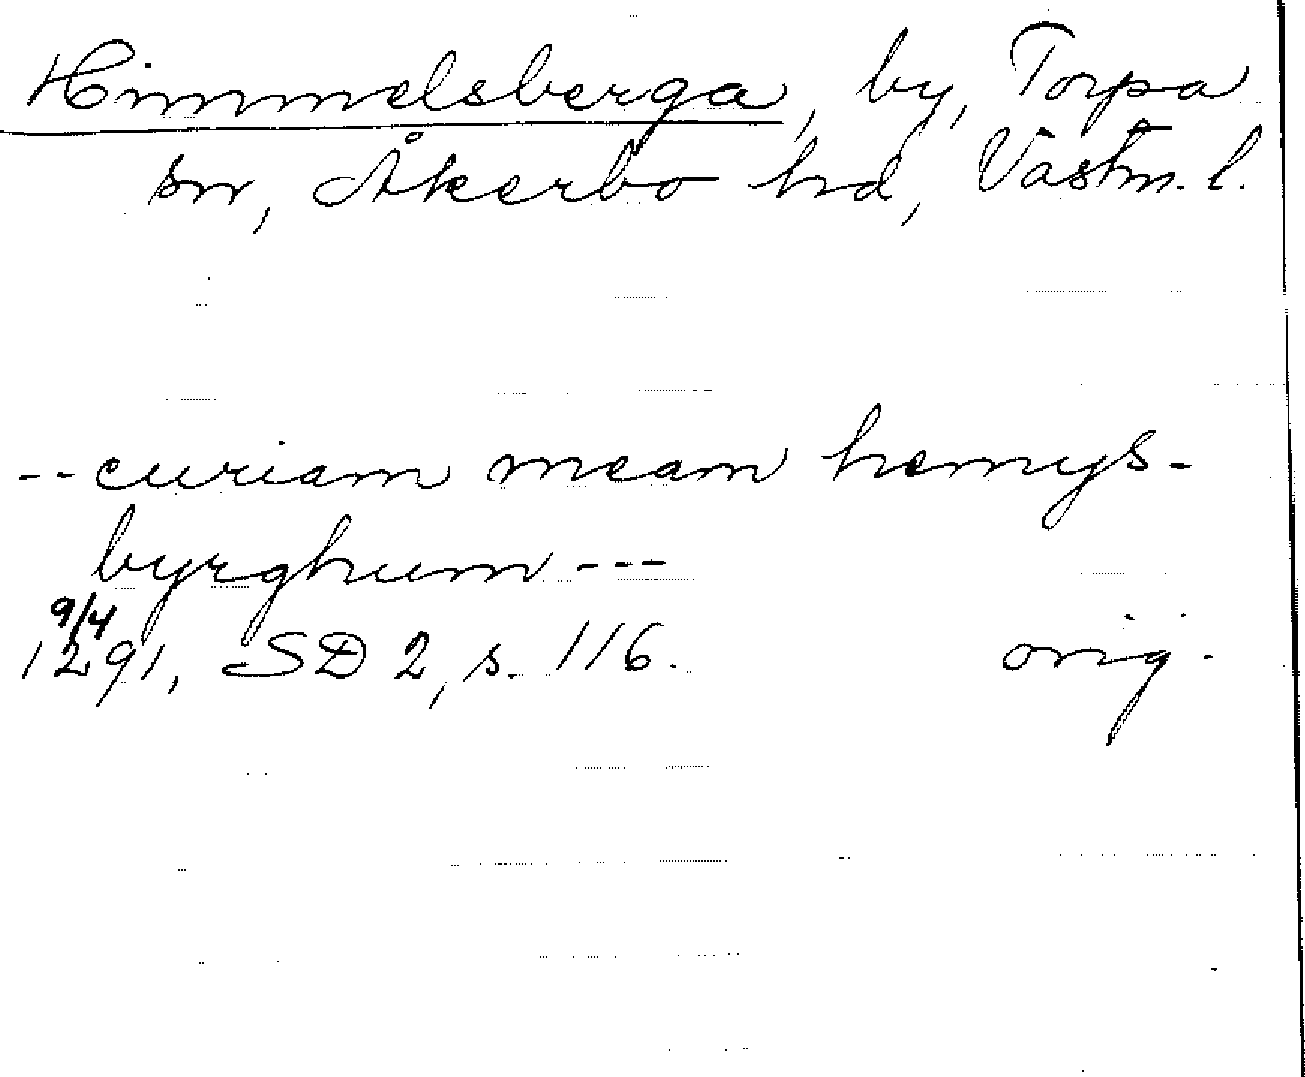 Himmelsberga, by, Torpa
sn, Åkerbo hd, Västm. l.
--curiam meam hemys-
byrghum ---
9/4
1291, SD 2, s. 116. orig.